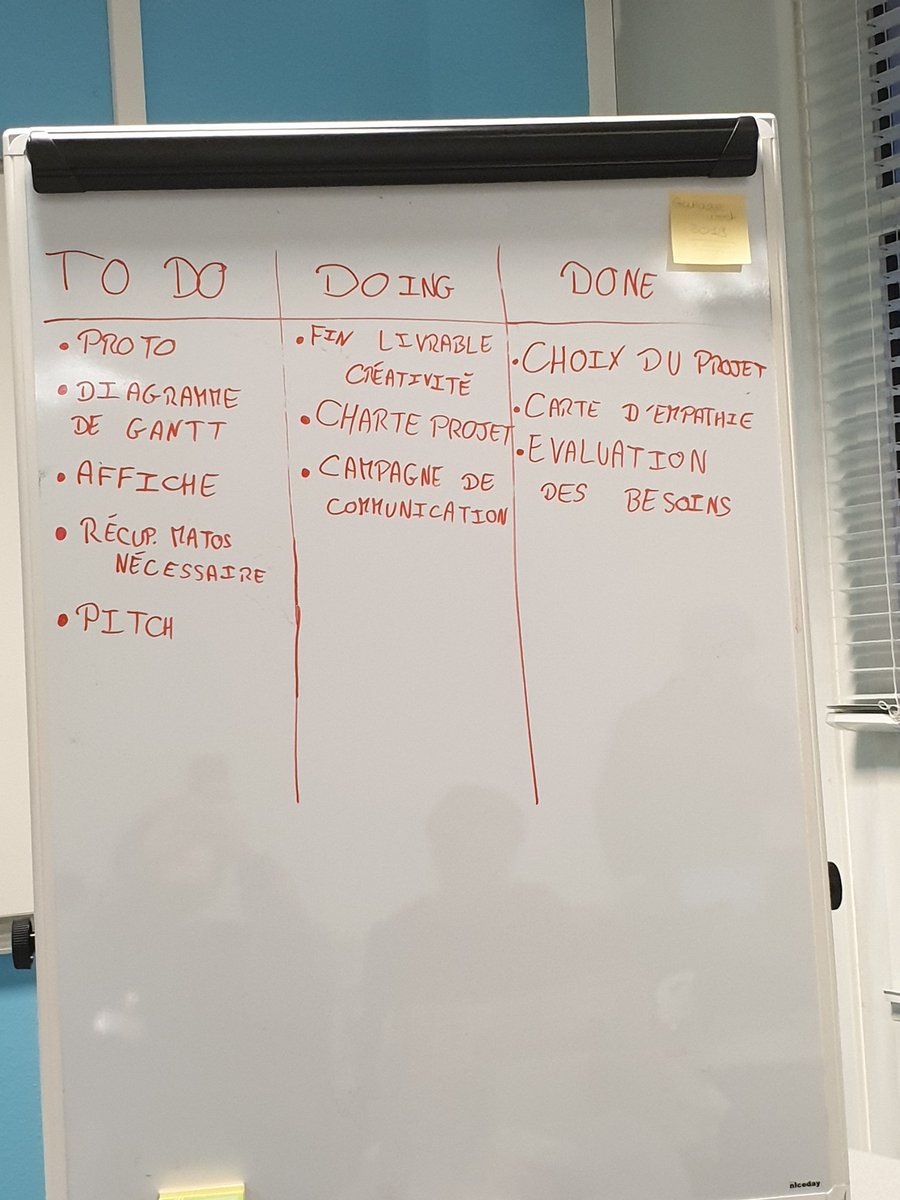 TO DO
DOING
DONE
• PROTO
• DIAGRAMME
DE GANTT
• AFFICHE
• RÉCUP. MATOS
NÉCESSAIRE
• PITCH
• FIN LIVRABLE
CRÉATIVITÉ
• CHARTE PROJET
• CAMPAGNE DE
COMMUNICATION
• CHOIX DU PROJET
• CARTE D'EMPATHIE
• EVALUATION
DES BESOINS
2019
niceday